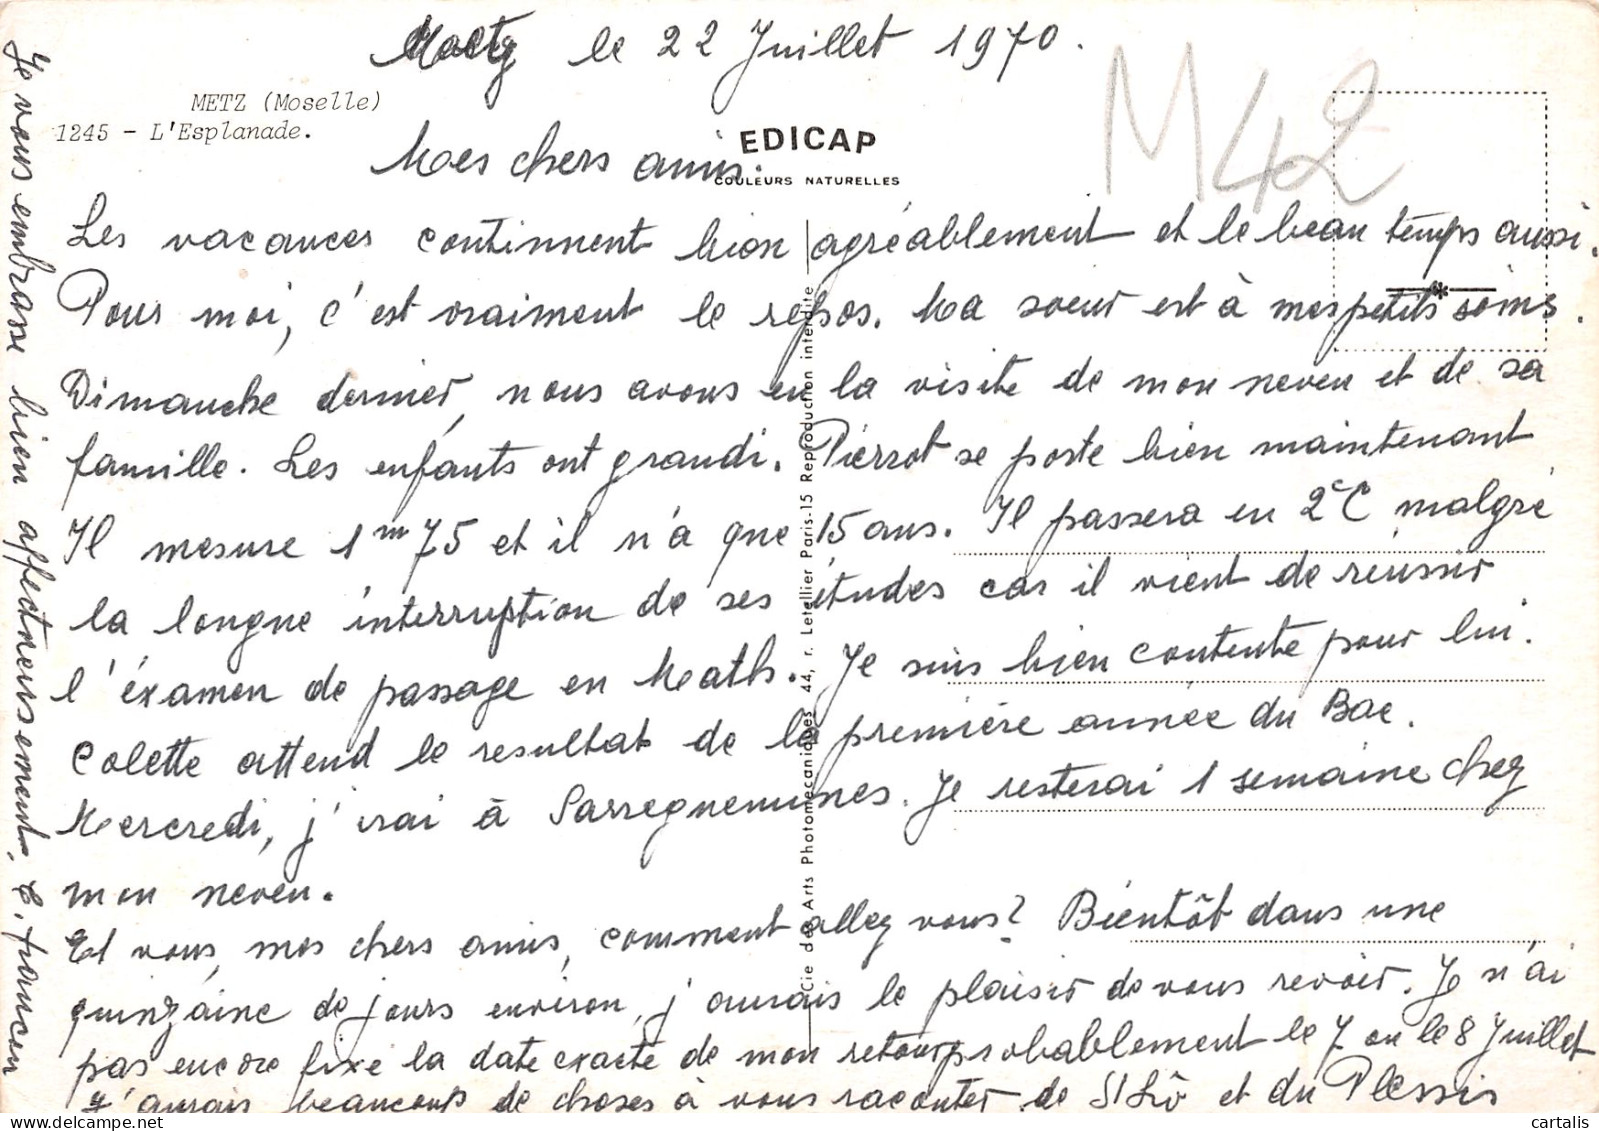 Metz le 22 Juillet 1970.
METZ (Moselle)
1245 - L'Esplanade.
EDICAP
COULEURS NATURELLES
M42
Mes chers amis.
Les vacances continuent bien agréablement et le beau temps aussi.
Pour moi, c'est vraiment le repos. Ma soeur est à mes petits soins.
Dimanche dernier, nous avons eu la visite de mon neveu et de sa
famille. Les enfants ont grandi. Pierrot se porte bien maintenant
Il mesure 1m75 et il n'a que 15 ans. Il passera en 2e C malgré
la longue interruption de ses études car il vient de réussir
l'éxamen de passage en Maths. Je suis bien contente pour lui.
Colette attend le resultat de la première année du Bac.
Mercredi, j'irai à Sarreguemines. Je resterai 1 semaine chez
mon neveu.
Et vous, mes chers amis, comment allez vous? Bientôt dans une
quinzaine de jours environ, j'aurais le plaisir de vous revoir. Je n'ai
pas encore fixé la date exacte de mon retour probablement le 7 ou le 8 Juillet
J'aurais beaucoup de choses à vous raconter de St Lô et du Plessis
Je vous embrasse bien affectueusement, C. françon
Cie des Arts Photomécaniques 44, r. Letellier Paris-15 Reproduction interdite
cartalis
delcampe.net